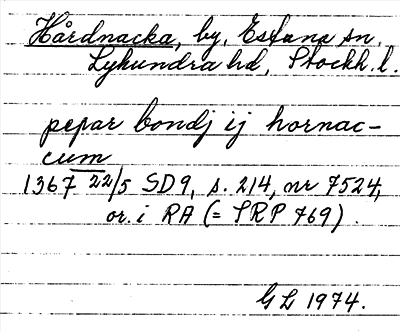 Hårdnacka, by, Estuna sn,
Lyhundra hd, Stockh. l.
pepar bondj ij hornac-
cum
1367 22/5 SD9, s. 214, nr 7524,
or. i RA (= SRP 769).
GL 1974.